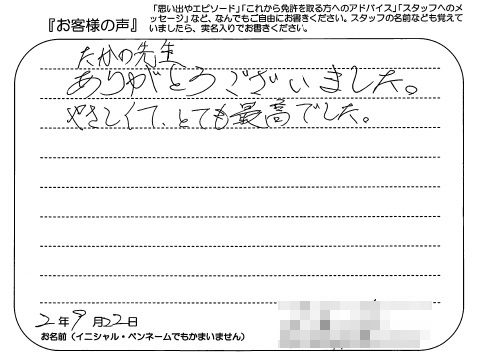 『お客様の声』
「思い出やエピソード」「これから免許を取る方へのアドバイス」「スタッフへのメ
ッセージ」など、なんでもご自由にお書きください。スタッフの名前なども覚えて
いましたら、実名入りでお書きください。
たかの先生
ありがとうございました。
やさしくて、とても最高でした。
2年9月22日
お名前(イニシャル・ペンネームでもかまいません)